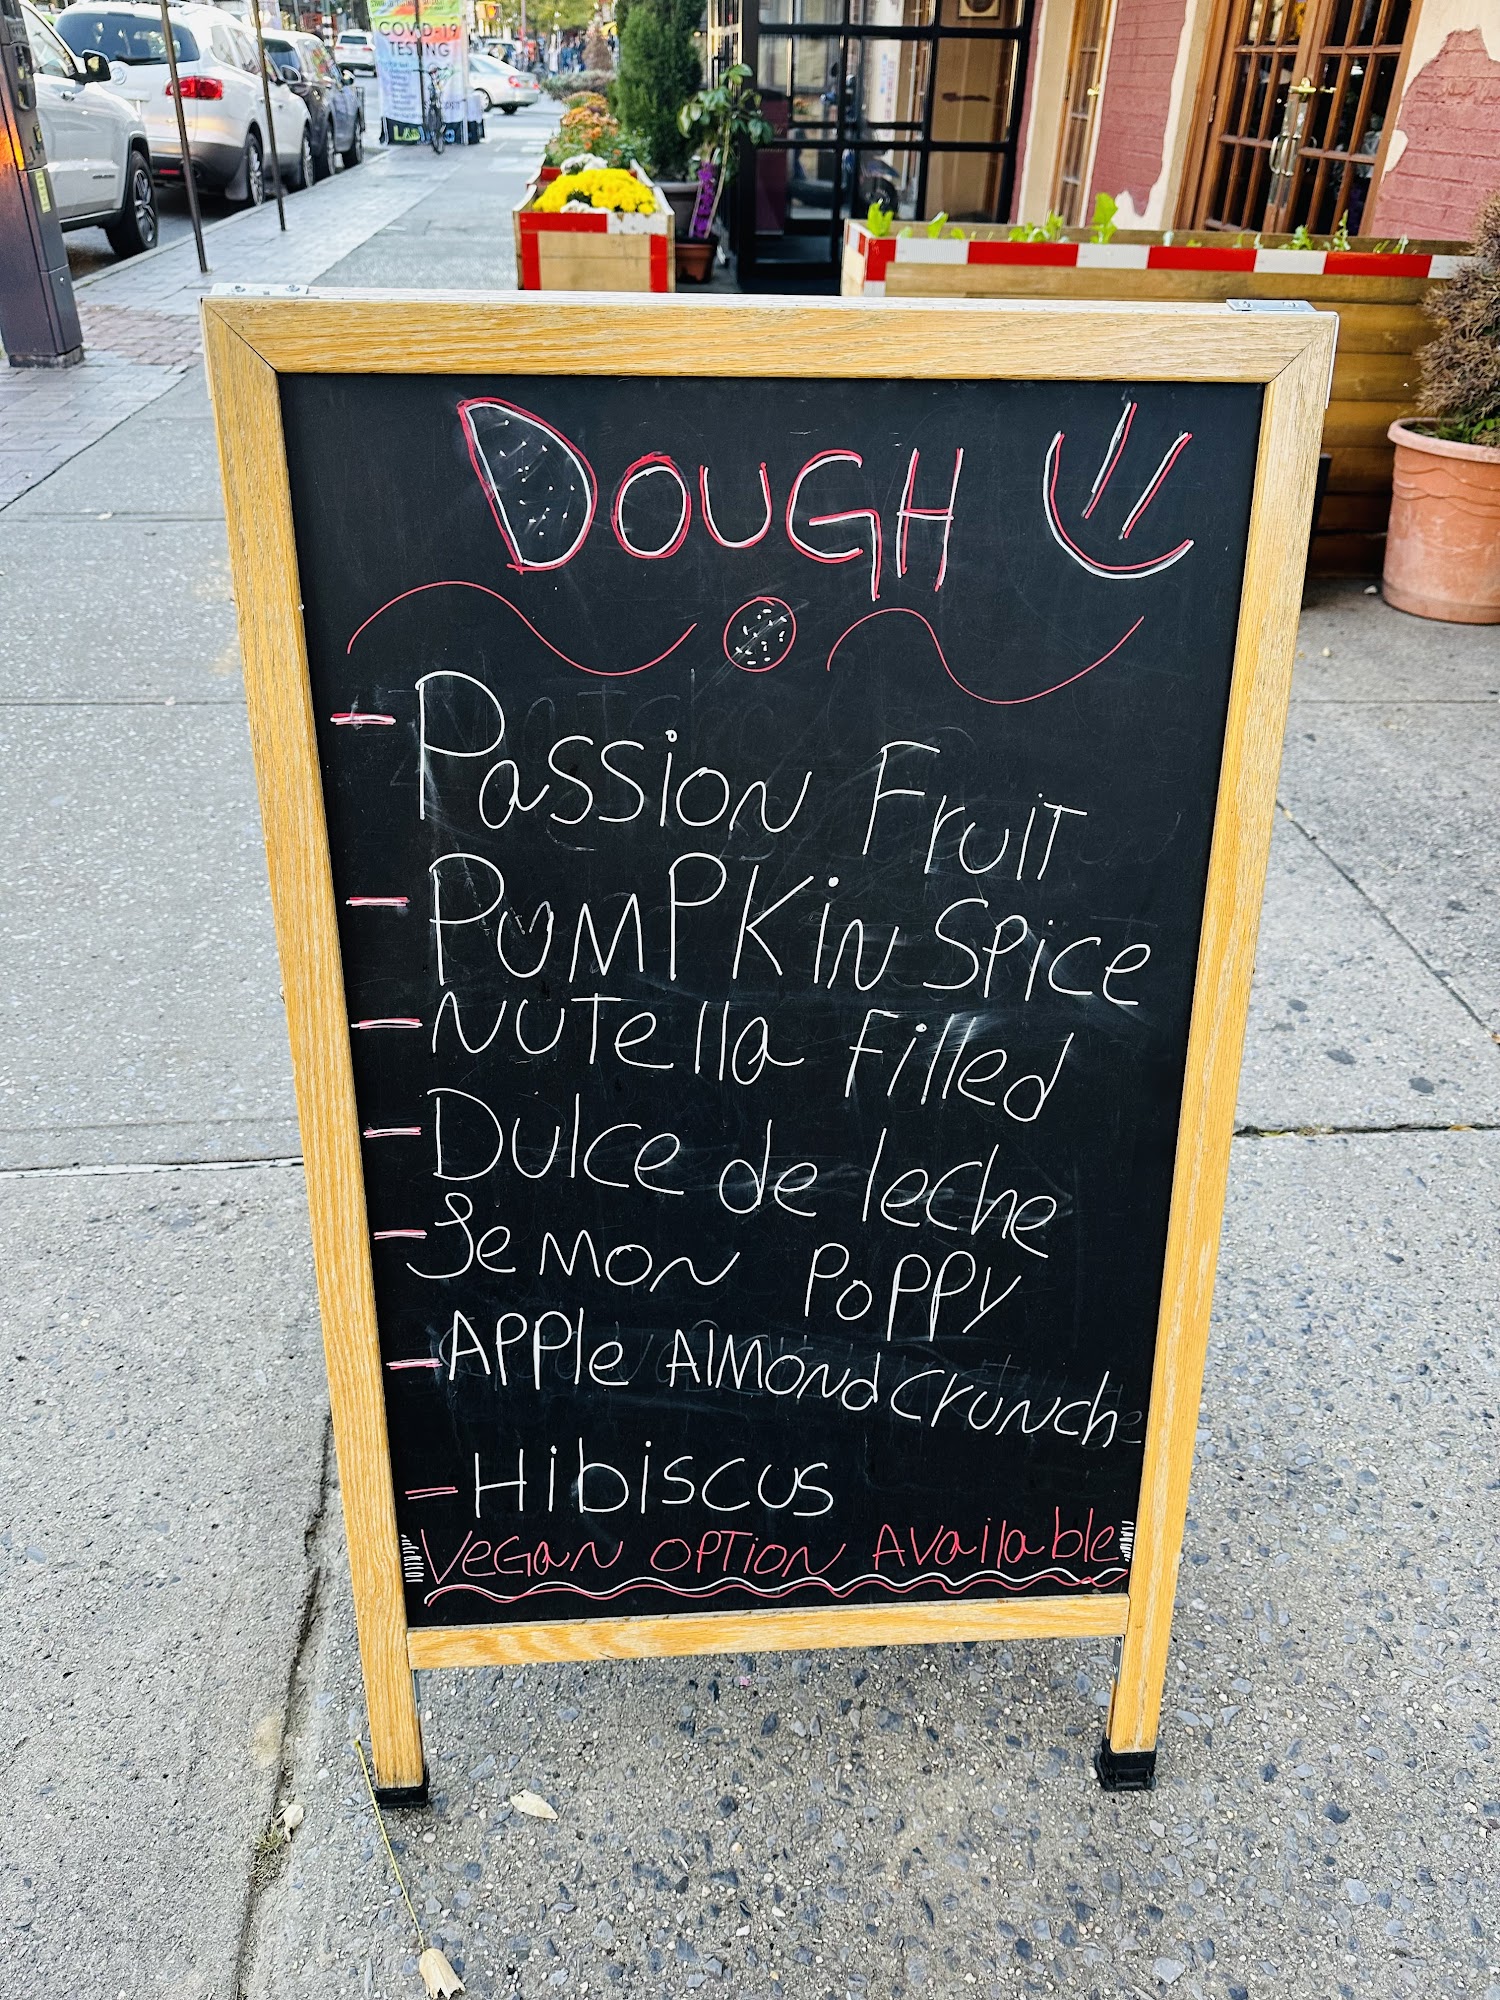 COVID-19
TESTING
DOUGH
- Passion Fruit
- Pumpkin Spice
- Nutella Filled
- Dulce de leche
- Lemon Poppy
- Apple Almond crunch
- Hibiscus
Vegan option Available